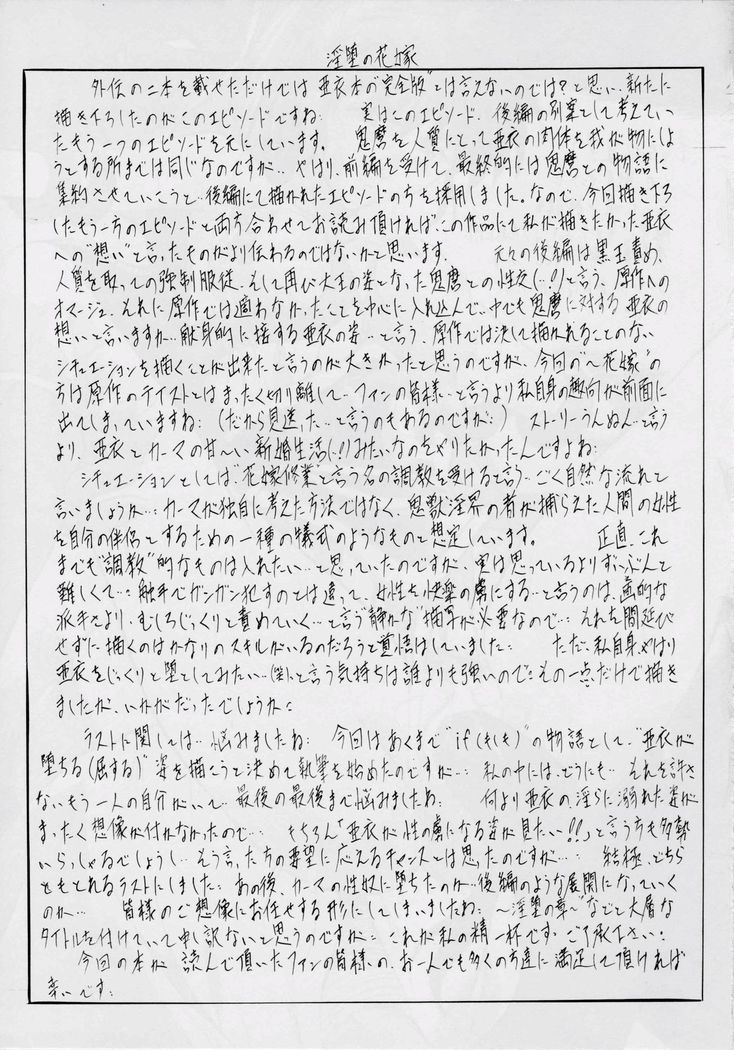 淫堕の花嫁
外伝の二本を載せただけでは亜衣本の"完全版"とは言えないのでは?と思い、新たに
描き下ろしたのがこのエピソードですね: 実はこのエピソード、後編の別案として考えてい
たもう一つのエピソードを元にしています。 鬼麿を人質にとって亜衣の肉体を我が物にしよ
うとする所までは同じなのですが… やはり、前編を受けて、最終的には鬼麿との物語に
集約させていこうと…後編にて描かれたエピソードの方を採用しました。なので、今回描き下ろ
したもう一方のエピソードと両方合わせてお読み頂ければ、この作品にて私が描きたかった亜衣
への"想い"と言ったものがより伝わるのではないかと思います。 元々の後編は黒玉責め、
人質を取っての強制服従、そして再び大王の姿となった鬼麿との性交(…!?)と言う、原作への
オマージュ、それに原作では適わなかったことを中心に入れ込んで…中でも鬼麿に対する亜衣の
想いと言いますか…献身的に接する亜衣の姿…と言う、原作では決して描かれることのない
シチュエーションを描くことが出来たと言うのが大きかったと思うのですが、今回の"〜花嫁"の
方は原作のテイストとはまったく切り離して…ファンの皆様…と言うより私自身の趣向が前面に
出てしまっていますね: (だから見送った…と言うのもあるのですが:) ストーリーうんぬん…と言う
より、亜衣とカーマの甘〜い新婚生活(…!?)みたいなのをやりたかったんですよね:
シチュエーションとしては"花嫁修業"と言う名の調教を受けると言う…ごく自然な流れと
言いましょうか…:カーマが独自に考えた方法ではなく、鬼獣淫界の者が捕らえた人間の女性
を自分の伴侶とするための一種の儀式のようなものと想定しています。 正直、これ
までも"調教"的なものは入れたい…と思っていたのですが、実は思っているよりずいぶんと
難しくて…:触手でガンガン犯すのとは違って、女性を快楽の虜にする…と言うのは、画的な
派手さより…むしろじっくりと責めていく…と言う"静かな"描写が必要なので…:それを間延び
せずに描くのはかなりのスキルがいるのだろうと覚悟はしていました: ただ、私自身やはり
亜衣をじっくりと堕としてみたい…(笑)…と言う気持ちは誰よりも強いので:その一点だけで描き
ましたが、いかがだったでしょうか:
ラストに関しては…悩みましたね: 今回はあくまで"if(もしも)"の物語として、"亜衣が
堕ちる(屈する)"姿を描こうと決めて執筆を始めたのですが…: 私の中には、どうにも…それを許さ
ないもう一人の自分がいて…最後の最後まで悩みましたね: 何より亜衣の、淫らに溺れた姿が
まったく想像が付かなかったので… もちろん「亜衣が性の虜になる姿が見たい!!」と言う方も多勢
いらっしゃるでしょうし…そう言った方の要望に応えるチャンスとは思ったのですが…: 結極、どちら
ともとれるラストにしました: あの後、カーマの性奴に堕ちたのか…後編のような展開になっていく
のか… 皆様のご想像にお任せする形にしてしまいましたね: "〜淫堕の章〜"などと大層な
タイトルを付けていて申し訳ないと思うのですが: これが私の精一杯です…ご了承下さい:
今回の本が 読んで頂いたファンの皆様の、お一人でも多くの方達に満足して頂ければ
幸いです: